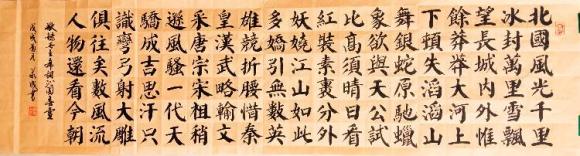 北國風光千里
冰封萬里雪飄
望長城內外惟
餘莽莽大河上
下頓失滔滔山
舞銀蛇原馳蠟
象欲與天公試
比高須晴日看
紅裝素裹分外
妖嬈江山如此
多嬌引無數英
雄競折腰惜秦
皇漢武略輸文
采唐宗宋祖稍
遜風騷一代天
驕成吉思汗只
識彎弓射大雕
俱往矣數風流
人物還看今朝
毛主席詞沁園春雪
戊戌